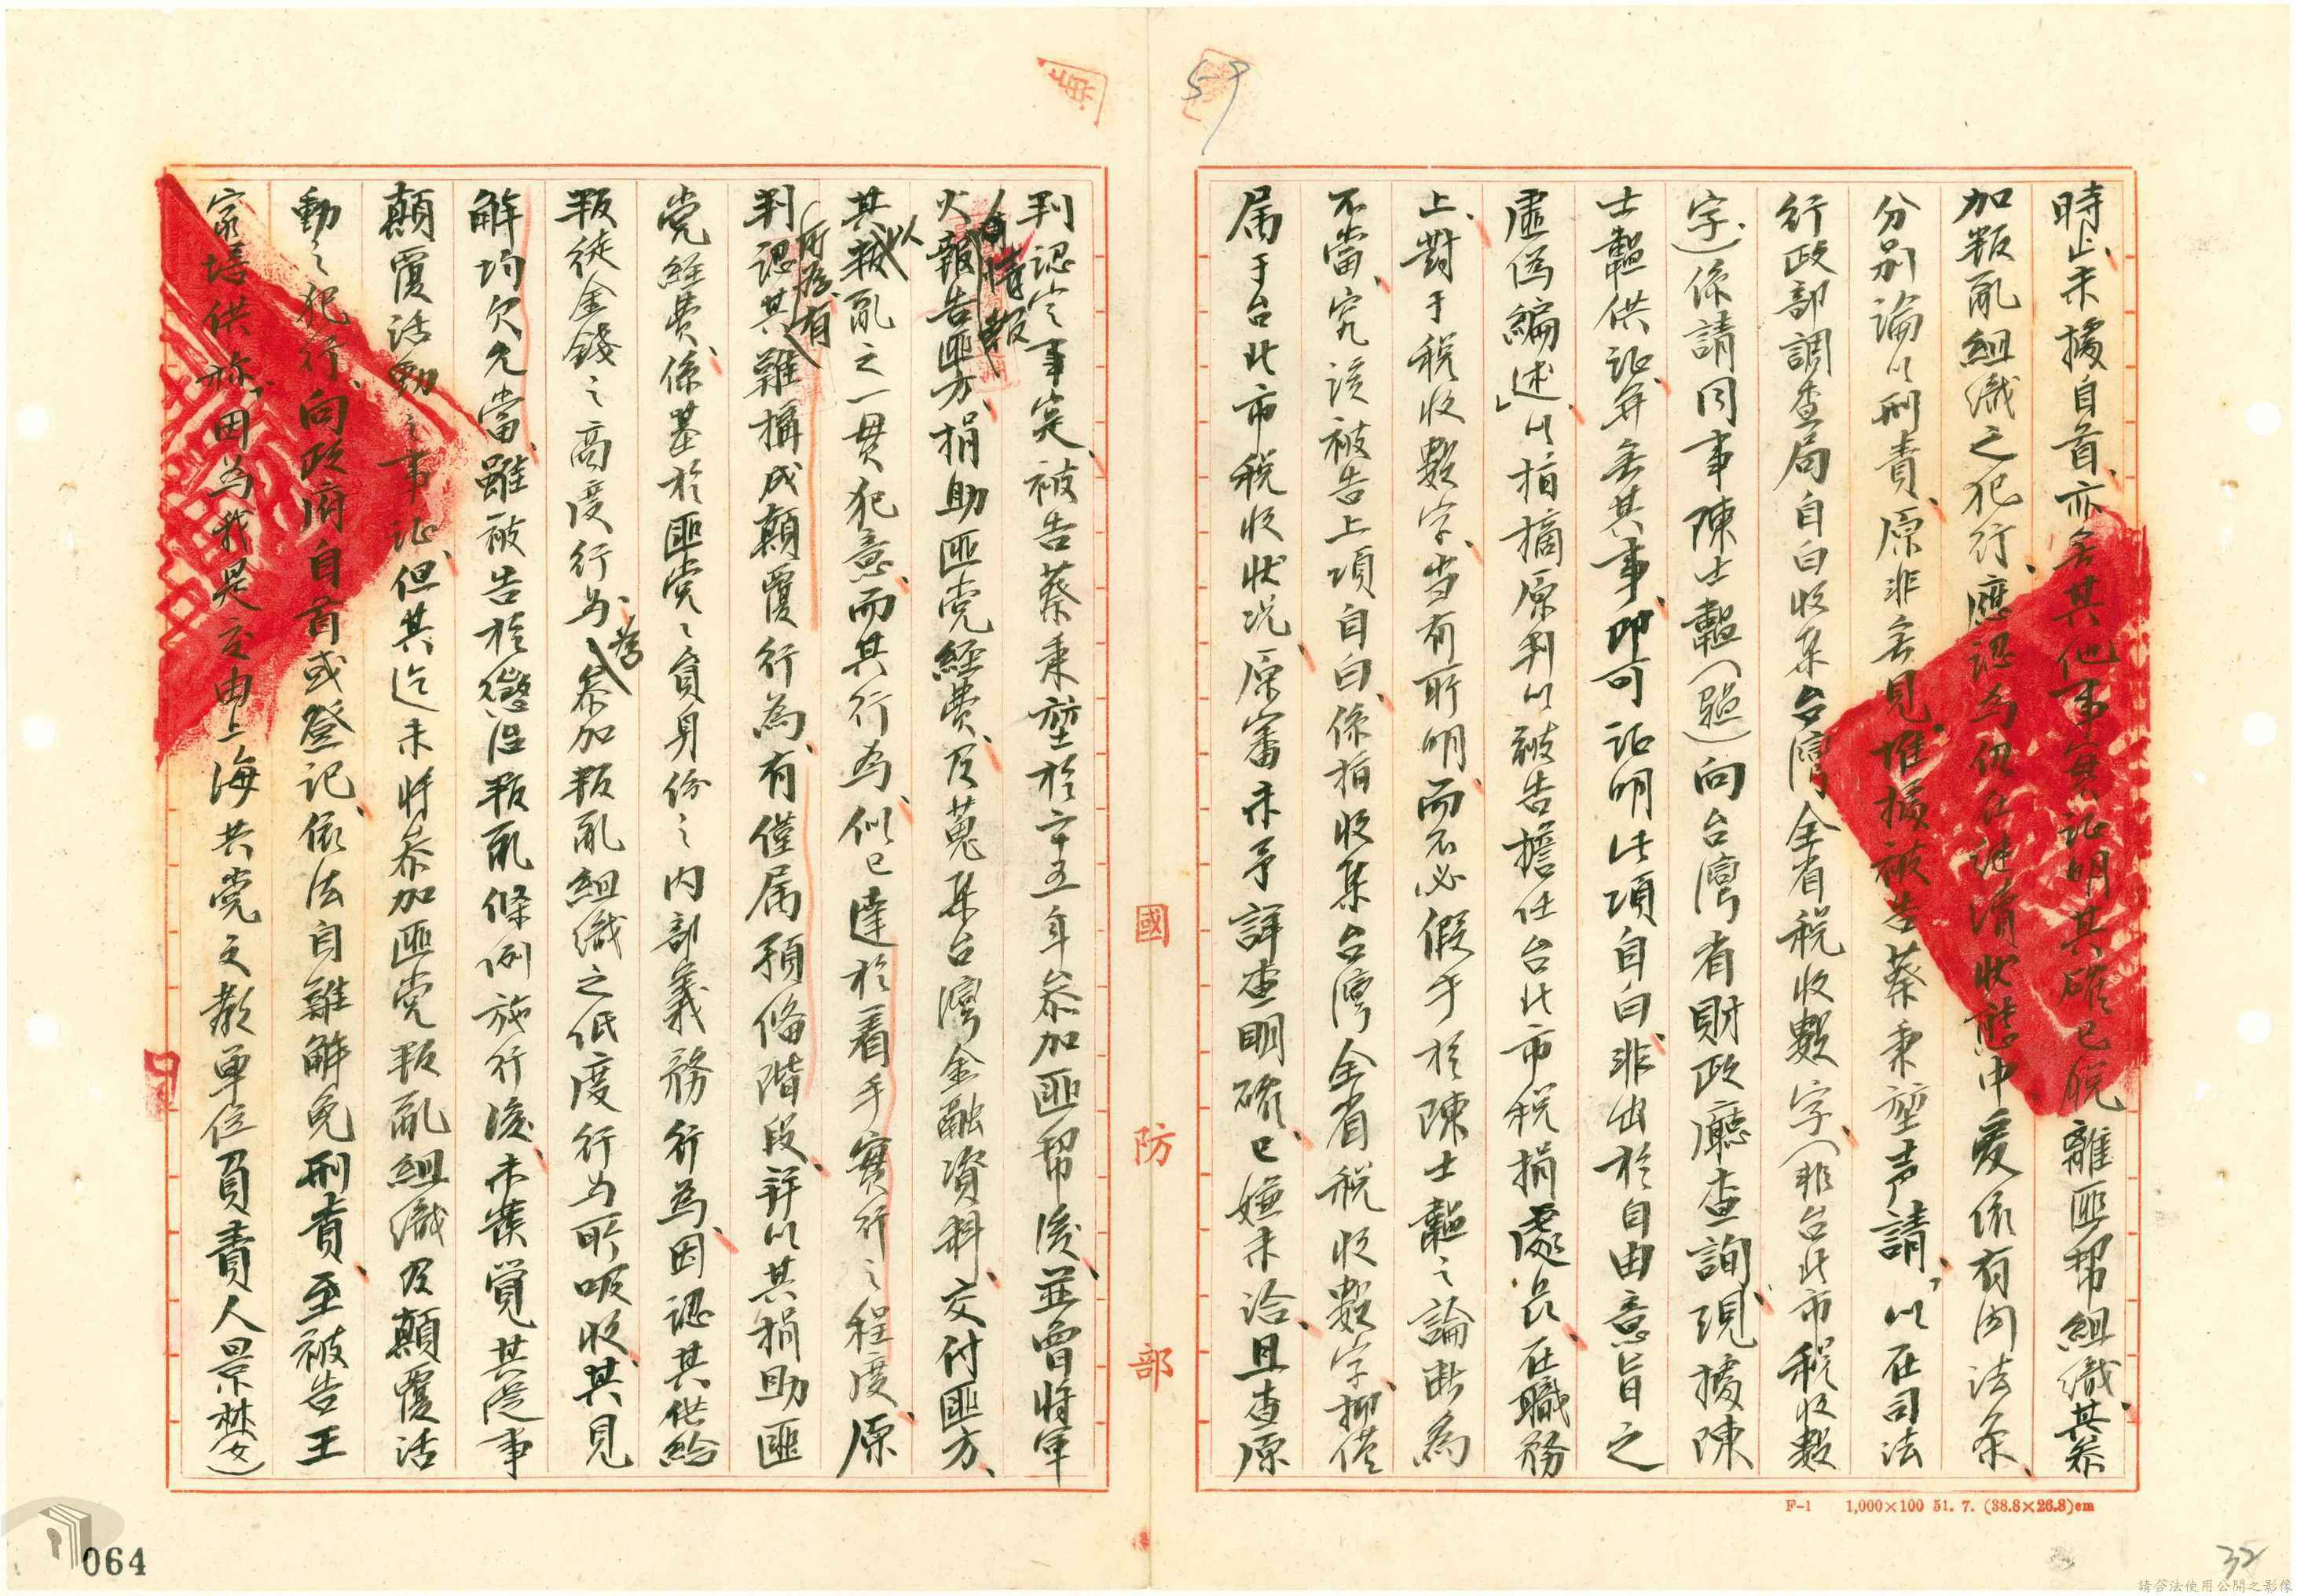 時止、未據自首、亦無其他事實証明其確已脫離匪幫組織、其參
加叛亂組織之犯行、應認為仍在継續狀態中、爰依有関法條、
分別論以刑責、原非無見、惟據被告蔡秉堃声請、「以在司法
行政部調查局自白收集台灣全省稅收數字（非台北市稅收數
字）係請同事陳士轀（韞）向台灣省財政廳查詢、現據陳
士轀供証、並無其事、即可証明此項自白、非出於自由意旨之
虛偽編述」、以指摘原判以被告擔任台北市稅捐處長、在職務
上、對于稅收數字、当有所明、而不必假手於陳士轀之論断為
不當、究該被告上項自白、係指收集台灣全省稅收數字、抑僅
屬于台北市稅收狀况、原審未予詳查明確、已嫌未洽、且查原
判認定事实、被告蔡秉堃於卅五年參加匪幫後、並曾將軍
火報告匪方、捐助匪党經費、及蒐集台灣金融資料、交付匪方、
有情報
其叛亂之一貫犯意、而其行為、似已達於着手實行之程度、原
以
判認其難構成顛覆行為、有僅属預俻階段、并以其捐助匪
所為、有
党経費、係基於匪党之負身份之内部義務行為、因認其供給
叛徒金錢之高度行为、參加叛亂組織之低度行为所吸收、其見
為
解均欠允當、雖被告於懲治叛亂條例施行後、未發覚其從事
顛覆活動之事証、但其迄未將參加匪党叛亂組織及顛覆活
動之犯行、向政府自首或登記、依法自難解免刑責、至被告王
宗培供称、「因為我是交由上海共党文教單位負責人景林(女)
國防部
F-1 1,000×100 51. 7. (38.8×26.8)cm
59
32
064
請合法使用公開之影像